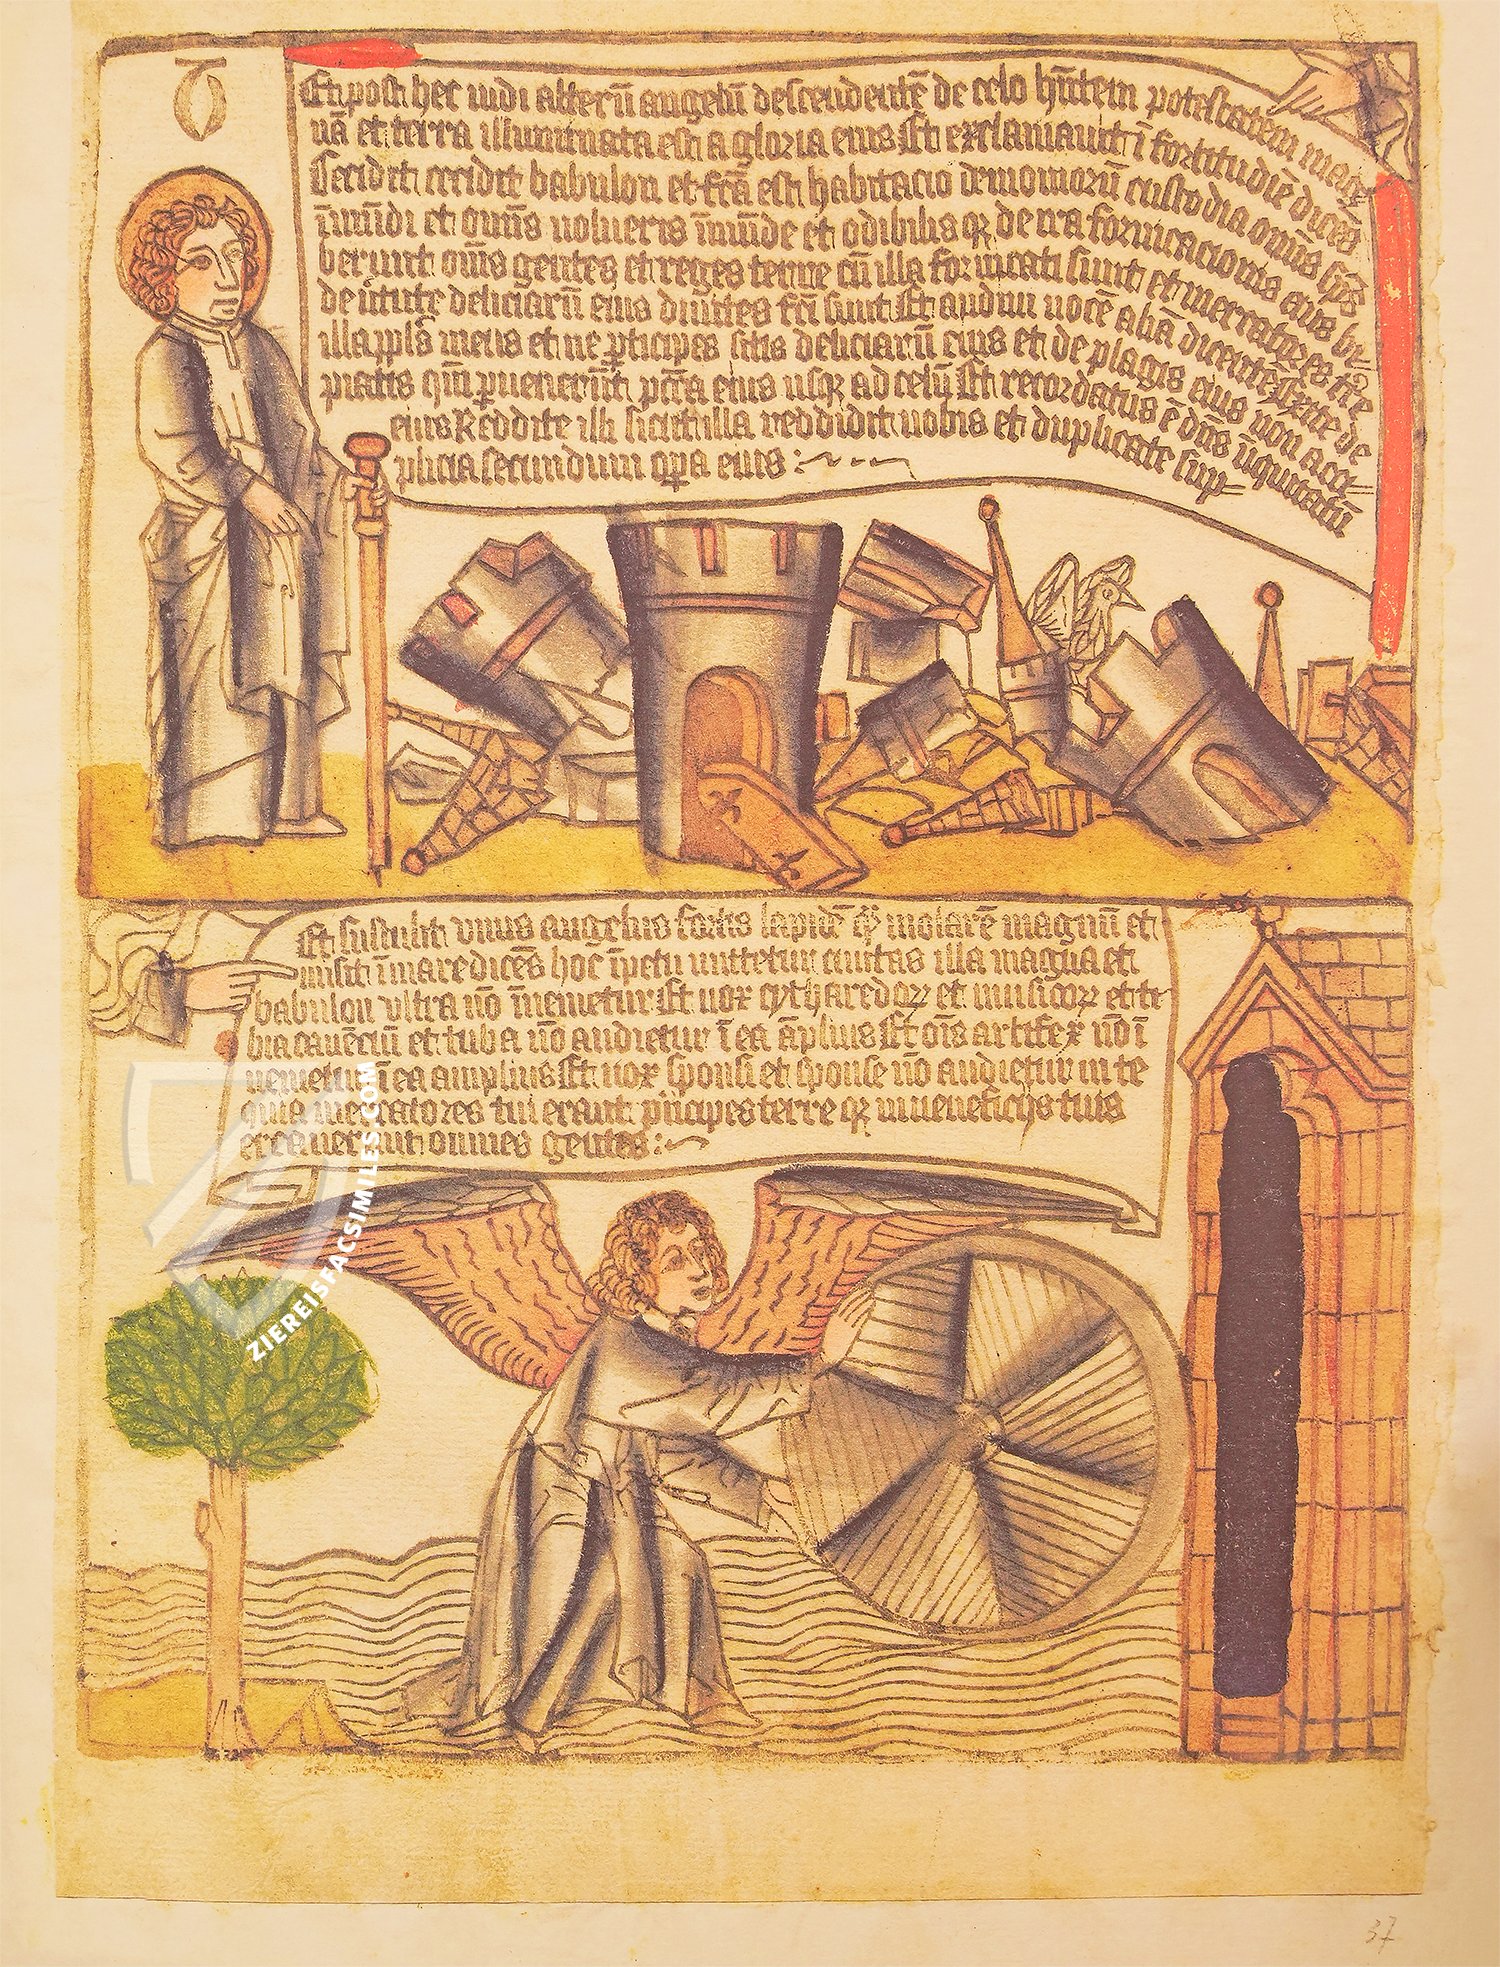 Et post hec vidi alterū angelū descendentē de celo hn̄tem potestatem mag
nā et terra illuminata est a gloria eius Et exclamauit ī fortitudīe dicēs
Cecidit cecidit babulon et fc̄a est habitacio demoniorū custodia om̄is sp̄s
īmūdi et om̄is volucris īmūde et odibilis qȝ de ira fornicacionis eius bi
berunt om̄s gentes et reges terre cū illa fornicati sunt et mercatores tr̄e
de v̄tute deliciarū eius diuites fc̄i sunt Et audiui vocē aliā dicentē Exite de
illa ppl̄s meus et ne pticipes sitis deliciarū eius et de plagis eius non acci
piatis qm̄ puenerūt pcc̄a eius usqȝ ad celū Et recordatus ē dn̄s iniquitatū
eius Reddite illi sicut illa reddidit uobis et duplicate dup
plicia secundum opa eius
Et sustulit vnus angelus fortis lapidē qsi molarē magnū et
misit ī mare dicēs hoc īpetu mittetur ciuitas illa magna et
babulon vltra nō īuenietur Et uox cytharedoꝝ et musicoꝝ et ti
bia canēciū et tuba nō audietur ī ea āplius Et oīs artifex nō ī
uenietur ī ea amplius Et uox sponsi et sponse nō audietur in te
quia mercatores tui erant pncipes terre qȝ in ueneficijs tuis
errauerunt omnes gentes
ZIEREISFACSIMILES.COM
37